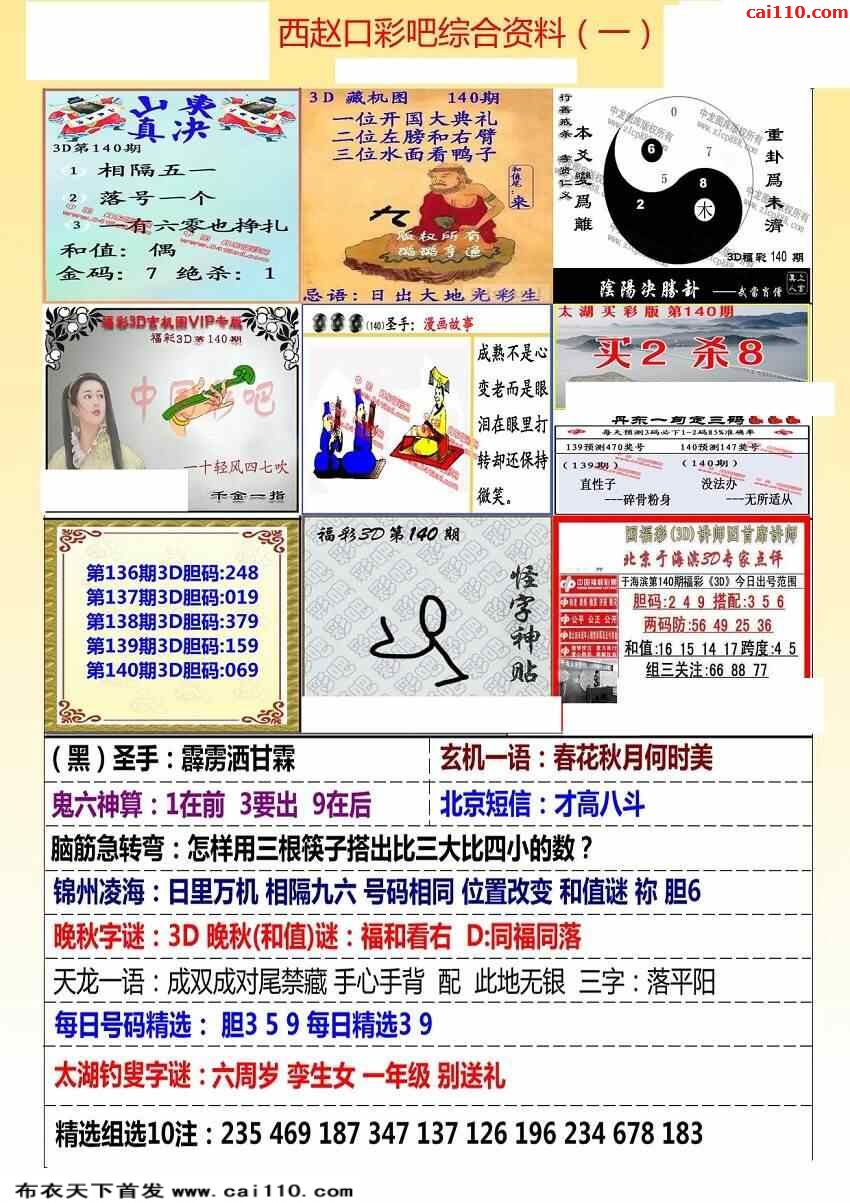 cai110.com
西赵口彩吧综合资料（一）
山奥
真决
3D第140期
1 相隔五一
2 落号一个
3 一有六零也挣扎
和值: 偶
金码: 7 绝杀: 1
3D 藏机图 140期
一位开国大典礼
二位左膀和右臂
三位水面看鸭子
和值尾:来
版权所有
忌语:日出大地光彩生
行善戒杀 孝贤仁义
本爻變爲離
重卦爲未濟
中龙图库版权所有
www.zlcp888.com
0
6
7
5
8
2
木
3D福彩 140 期
陰陽决勝卦 ——武當肖僧
福彩3D玄机图VIP专版
福彩3D第140期
中国彩吧
一十轻风四七吹
千金一指
(140)圣手: 漫画故事
成熟不是心
变老而是眼
泪在眼里打
转却还保持
微笑。
太湖买彩版 第140期
买2 杀8
丹东一句定三码
每天预测3码必下1-2码85%准确率
139预测470奖号 140预测147奖号
(139期) (140期)
直性子 没法办
---碎骨粉身 ---无所适从
第136期3D胆码:248
第137期3D胆码:019
第138期3D胆码:379
第139期3D胆码:159
第140期3D胆码:069
福彩3D第140期
怪字神贴
国福彩(3D)讲师团首席讲师
北京于海滨3D专家点评
中国福利彩票
于海滨第140期福彩《3D》今日出号范围
胆码:2 4 9 搭配:3 5 6
公平 公正 公开
两码防:56 49 25 36
和值:16 15 14 17 跨度:4 5
组三关注:66 88 77
(黑)圣手：霹雳洒甘霖
玄机一语：春花秋月何时美
鬼六神算：1在前 3要出 9在后
北京短信：才高八斗
脑筋急转弯：怎样用三根筷子搭出比三大比四小的数？
锦州凌海：日里万机 相隔九六 号码相同 位置改变 和值谜 祢 胆6
晚秋字谜：3D 晚秋(和值)谜：福和看右 D:同福同落
天龙一语：成双成对尾禁藏 手心手背 配 此地无银 三字：落平阳
每日号码精选： 胆3 5 9 每日精选3 9
太湖钓叟字谜：六周岁 孪生女 一年级 别送礼
精选组选10注：235 469 187 347 137 126 196 234 678 183
布衣天下首发 www.cai110.com